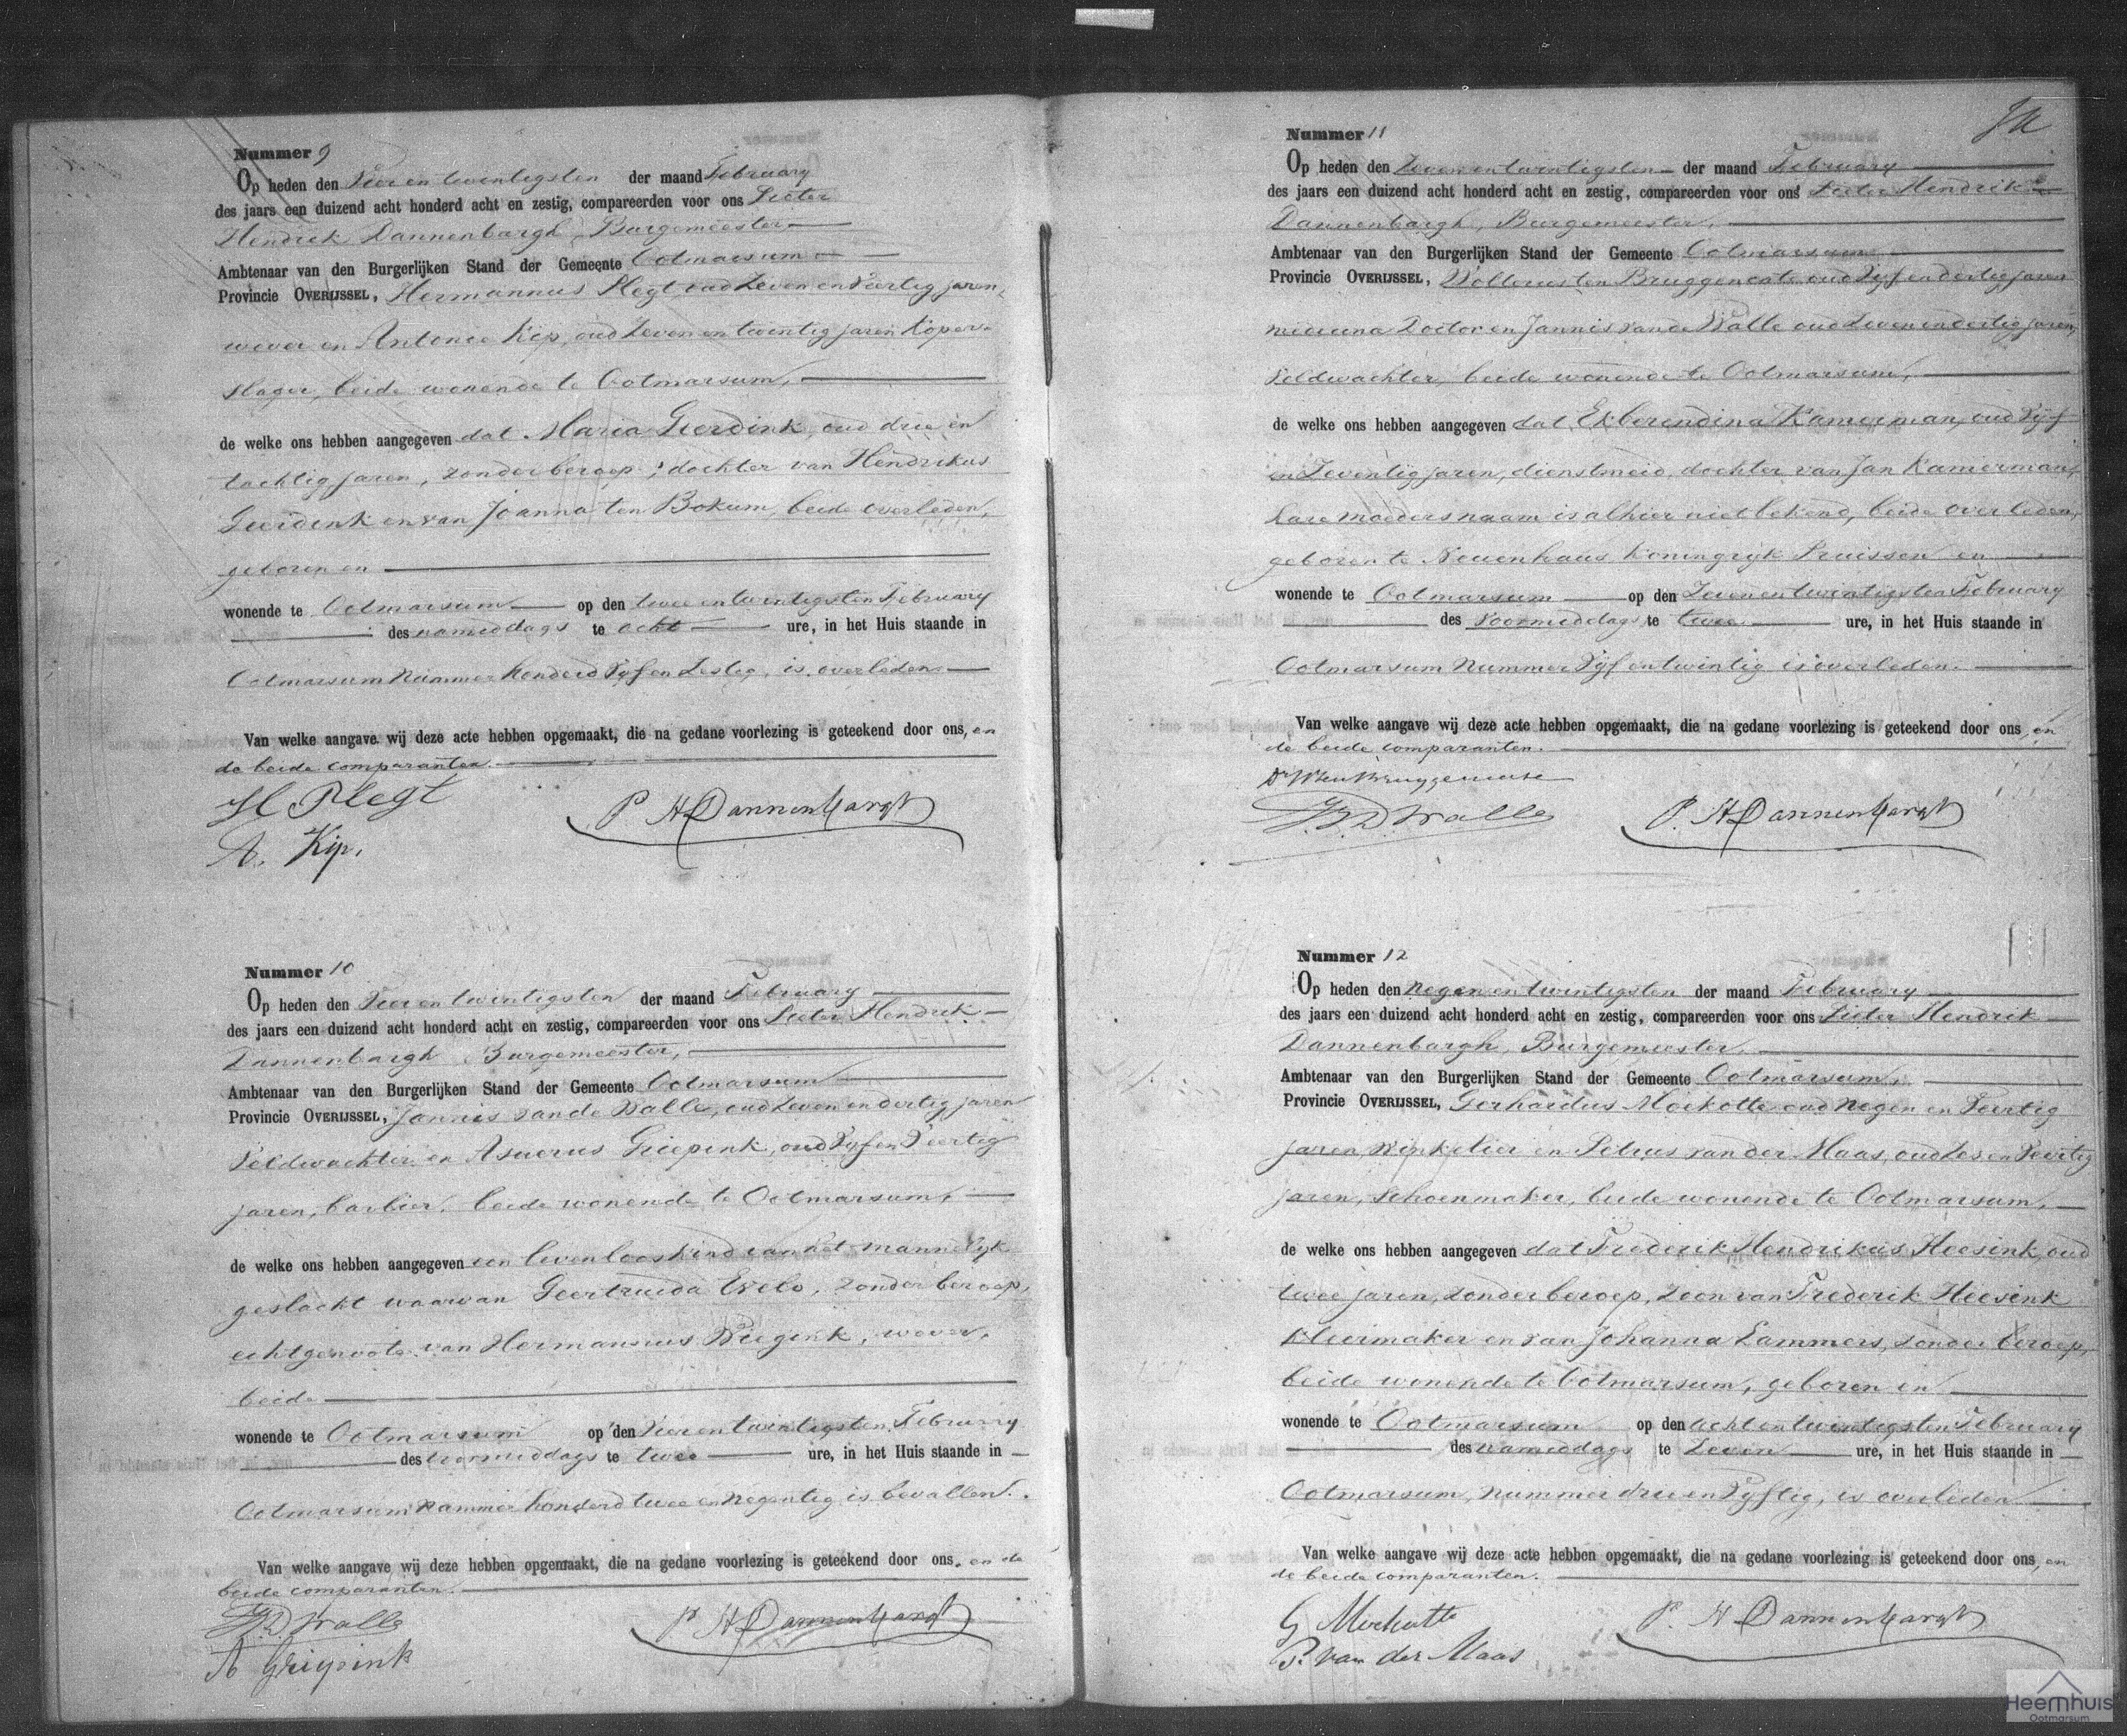 Nummer 9
Op heden den Vier en twintigsten der maand February
des jaars een duizend acht honderd acht en zestig, compareerden voor ons Pieter
Hendrik Dannenbargh, Burgemeester
Ambtenaar van den Burgerlijken Stand der Gemeente Ootmarsum
Provincie OVERIJSSEL, Hermannus Plegt, oud Zeven en Veertig jaren,
wever en Antonie Kip, oud Zeven en twintig jaren Koper-
slager, beide wonende te Ootmarsum,
de welke ons hebben aangegeven dat Maria Geerdink, oud drie en
tachtig jaren, zonder beroep, dochter van Hendrikus
Geerdink en van Joanna ten Bokum, beide overleden,
geboren en
wonende te Ootmarsum op den twee en twintigsten February
des namiddags te acht ure, in het Huis staande in
Ootmarsum Nummer honderd Vyf en Zestig, is overleden.
Van welke aangave wij deze acte hebben opgemaakt, die na gedane voorlezing is geteekend door ons, en
de beide comparanten.
H Plegt
P H Dannenbargh
A. Kip.
Nummer 10
Op heden den Vier en twintigsten der maand February
des jaars een duizend acht honderd acht en zestig, compareerden voor ons Pieter Hendrik
Dannenbargh Burgemeester,
Ambtenaar van den Burgerlijken Stand der Gemeente Ootmarsum
Provincie OVERIJSSEL, Jannis van de Walle, oud Zeven en dertig jaren
Veldwachter en Asuerus Griepink, oud Vyf en Veertig
jaren, barbier, beide wonende te Ootmarsum,
de welke ons hebben aangegeven een levenloos kind van het mannelyk
geslacht waarvan Geertruida Evelo, zonder beroep,
echtgenoote van Hermannus Wiegink, wever,
beide
wonende te Ootmarsum op den Vier en twintigsten February
des voormiddags te twee ure, in het Huis staande in
Ootmarsum Nummer honderd twee en negentig is bevallen.
Van welke aangave wij deze hebben opgemaakt, die na gedane voorlezing is geteekend door ons, en de
beide comparanten.
P H Dannenbargh
A Griepink
Nummer 11
Op heden den Zeven en twintigsten der maand February
des jaars een duizend acht honderd acht en zestig, compareerden voor ons Pieter Hendrik
Dannenbargh, Burgemeester,
Ambtenaar van den Burgerlijken Stand der Gemeente Ootmarsum
Provincie OVERIJSSEL, Wolterus ten Bruggencate oud Vyf en dertig jaren
medicina Doctor en Jannis van de Walle oud Zeven en dertig jaren,
Veldwachter, beide wonende te Ootmarsum,
de welke ons hebben aangegeven dat Ekberendina Kamerman, oud Vyf
en Zeventig jaren, dienstmeid, dochter van Jan Kamerman,
hare moeders naam is alhier niet bekend, beide overleden,
geboren te Neuenhaus Koningryk Pruissen en
wonende te Ootmarsum op den Zeven en twintigsten February
des voormiddags te twee ure, in het Huis staande in
Ootmarsum Nummer Vyf en twintig is overleden.
Van welke aangave wij deze acte hebben opgemaakt, die na gedane voorlezing is geteekend door ons, en
de beide comparanten.
P. H Dannenbargh
Nummer 12
Op heden den negen en twintigsten der maand February
des jaars een duizend acht honderd acht en zestig, compareerden voor ons Pieter Hendrik
Dannenbargh, Burgemeester,
Ambtenaar van den Burgerlijken Stand der Gemeente Ootmarsum,
Provincie OVERIJSSEL, Gerhardus Mockotte oud negen en Veertig
jaren Winkelier en Petrus van der Maas, oud Zes en Veertig
jaren, Schoenmaker, beide wonende te Ootmarsum,
de welke ons hebben aangegeven dat Frederik Hendrikus Heesink, oud
twee jaren, zonder beroep, zoon van Frederik Heesink
Kleermaker en van Johanna Lammers, zonder beroep,
beide wonende te Ootmarsum, geboren en
wonende te Ootmarsum op den acht en twintigsten February
des namiddags te Zeven ure, in het Huis staande in
Ootmarsum, nummer drie en Vyftig, is overleden
Van welke aangave wij deze acte hebben opgemaakt, die na gedane voorlezing is geteekend door ons, en
de beide comparanten.
G Mockotte
P. H Dannenbargh
P. van der Maas
Heemhuis
Ootmarsum